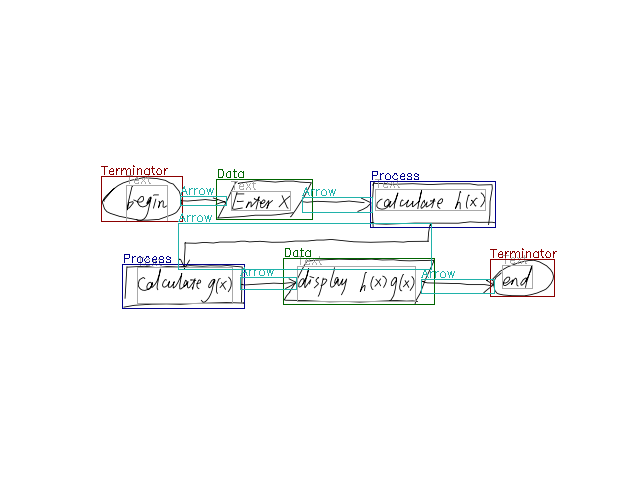 Terminator
Text
begin
Arrow
Data
Text
Enter X
Arrow
Process
Text
calculate h(x)
Arrow
Process
Text
calculate g(x)
Arrow
Data
Text
display h(x) g(x)
Arrow
Terminator
Text
end